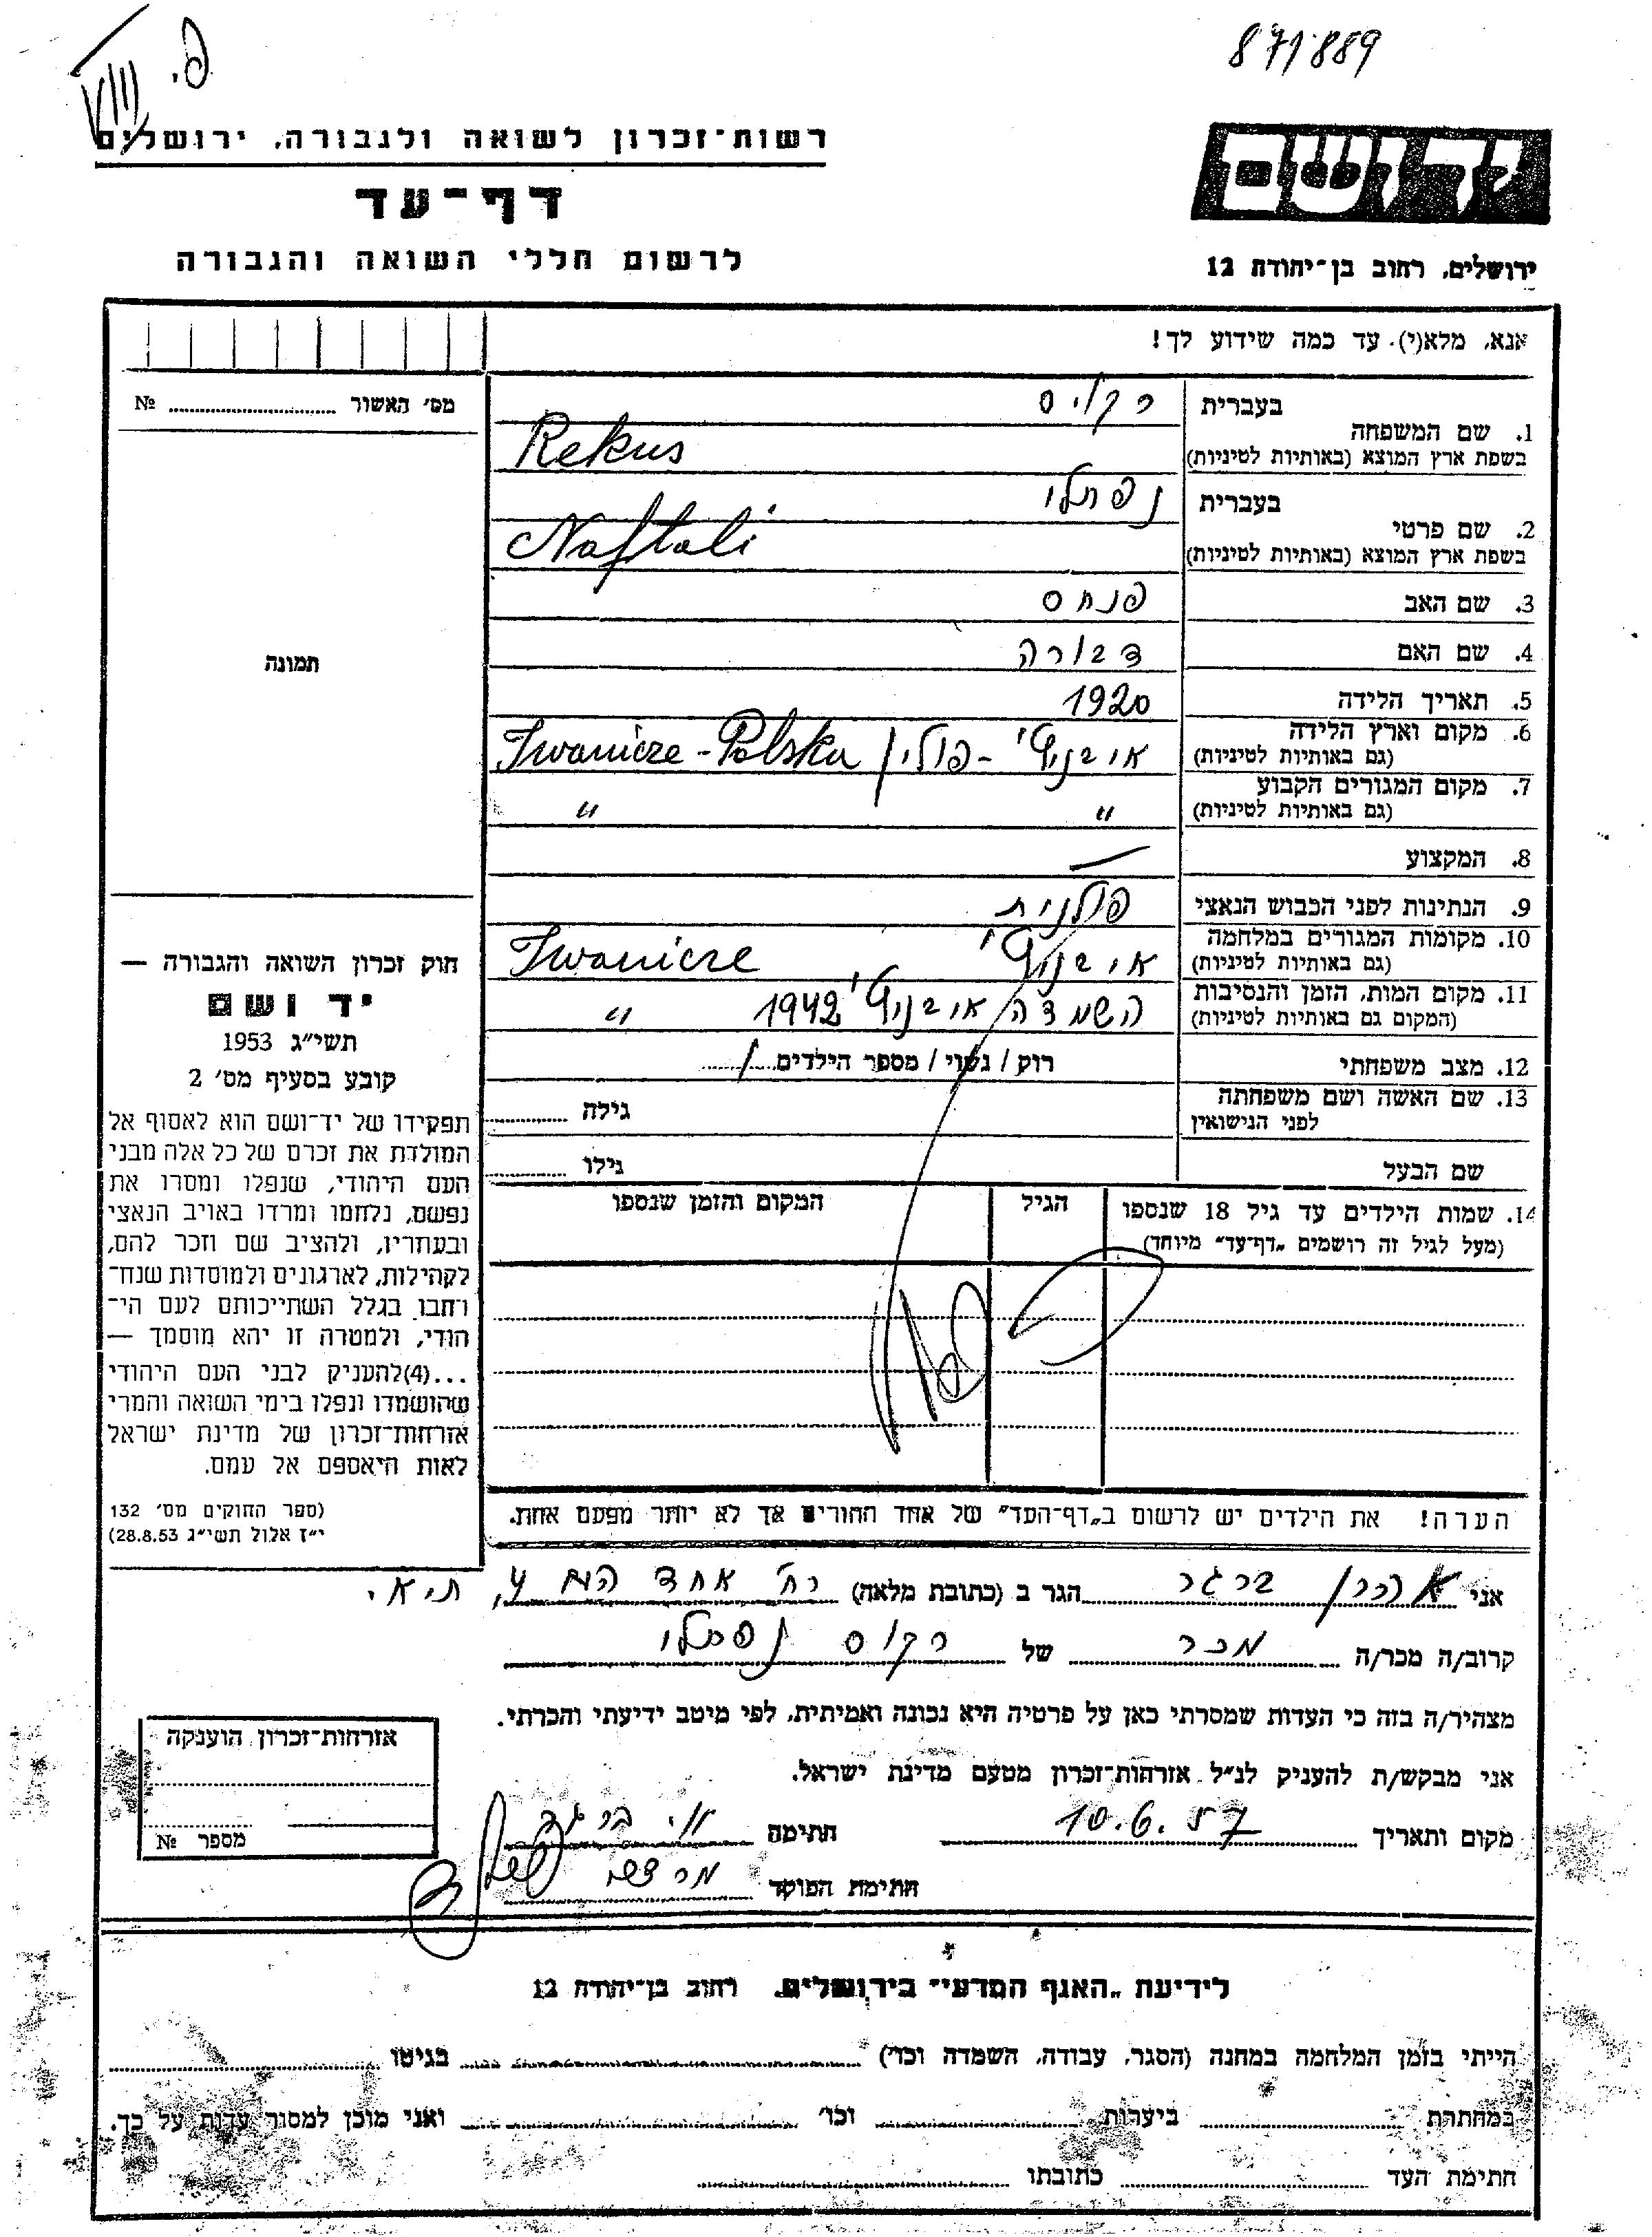 871889
פ. VIII
רשות־זכרון לשואה ולגבורה, ירושלים
דף־עד
לרשום חללי השואה והגבורה
יד ושם
ירושלים, רחוב בן־יהודה 12
אנא, מלא(י) עד כמה שידוע לך!
מס׳ האשור .......... №
תמונה
1. שם המשפחה בעברית רקוס
בשפת ארץ המוצא (באותיות לטיניות) Rekus
2. שם פרטי בעברית נפתלי
בשפת ארץ המוצא (באותיות לטיניות) Naftali
3. שם האב פנחס
4. שם האם דבורה
5. תאריך הלידה 1920
6. מקום וארץ הלידה (גם באותיות לטיניות) איבניצ׳י - פולין Iwanicze - Polska
7. מקום המגורים הקבוע (גם באותיות לטיניות) " "
8. המקצוע —
9. הנתינות לפני הכבוש הנאצי פולנית
10. מקומות המגורים במלחמה (גם באותיות לטיניות) איבניצ׳י Iwanicze
11. מקום המות, הזמן והנסיבות (המקום גם באותיות לטיניות) השמדה איבניצ׳י 1942 "
12. מצב משפחתי רוק / נשוי / מספר הילדים
13. שם האשה ושם משפחתה לפני הנישואין גילה
שם הבעל גילו
14. שמות הילדים עד גיל 18 שנספו הגיל המקום והזמן שנספו
(מעל לגיל זה רושמים „דף־עד״ מיוחד)
חוק זכרון השואה והגבורה —
יד ושם
תשי״ג 1953
קובע בסעיף מס׳ 2
תפקידו של יד־ושם הוא לאסוף אל
המולדת את זכרם של כל אלה מבני
העם היהודי, שנפלו ומסרו את
נפשם, נלחמו ומרדו באויב הנאצי
ובעוזריו, ולהציב שם וזכר להם,
לקהילות, לארגונים ולמוסדות שנח־
רבו בגלל השתייכותם לעם הי־
הודי, ולמטרה זו יהא מוסמך —
...(4)להעניק לבני העם היהודי
שהושמדו ונפלו בימי השואה והמרי
אזרחות־זכרון של מדינת ישראל
לאות היאספם אל עמם.
(ספר החוקים מס׳ 132
י״ז אלול תשי״ג 28.8.53)
הערה! את הילדים יש לרשום ב„דף־העד״ של אחד ההורים אך לא יותר מפעם אחת.
אני אהרן ברגר הגר ב (כתובת מלאה) רח׳ אחד העם 4, ת.א.
קרוב/ה מכר/ה מכר של רקוס נפתלי
מצהיר/ה בזה כי העדות שמסרתי כאן על פרטיה היא נכונה ואמיתית, לפי מיטב ידיעתי והכרתי.
אני מבקש/ת להעניק לנ״ל אזרחות־זכרון מטעם מדינת ישראל.
מקום ותאריך 10.6.57 חתימה א. ברגר
חתימת הפוקד
אזרחות־זכרון הוענקה
מספר №
לידיעת „האגף המדעי״ בירושלים, רחוב בן־יהודה 12
הייתי בזמן המלחמה במחנה (הסגר, עבודה, השמדה וכו׳) בגיטו
במחתרת ביערות וכו׳ ואני מוכן למסור עדות על כך.
חתימת העד כתובתו